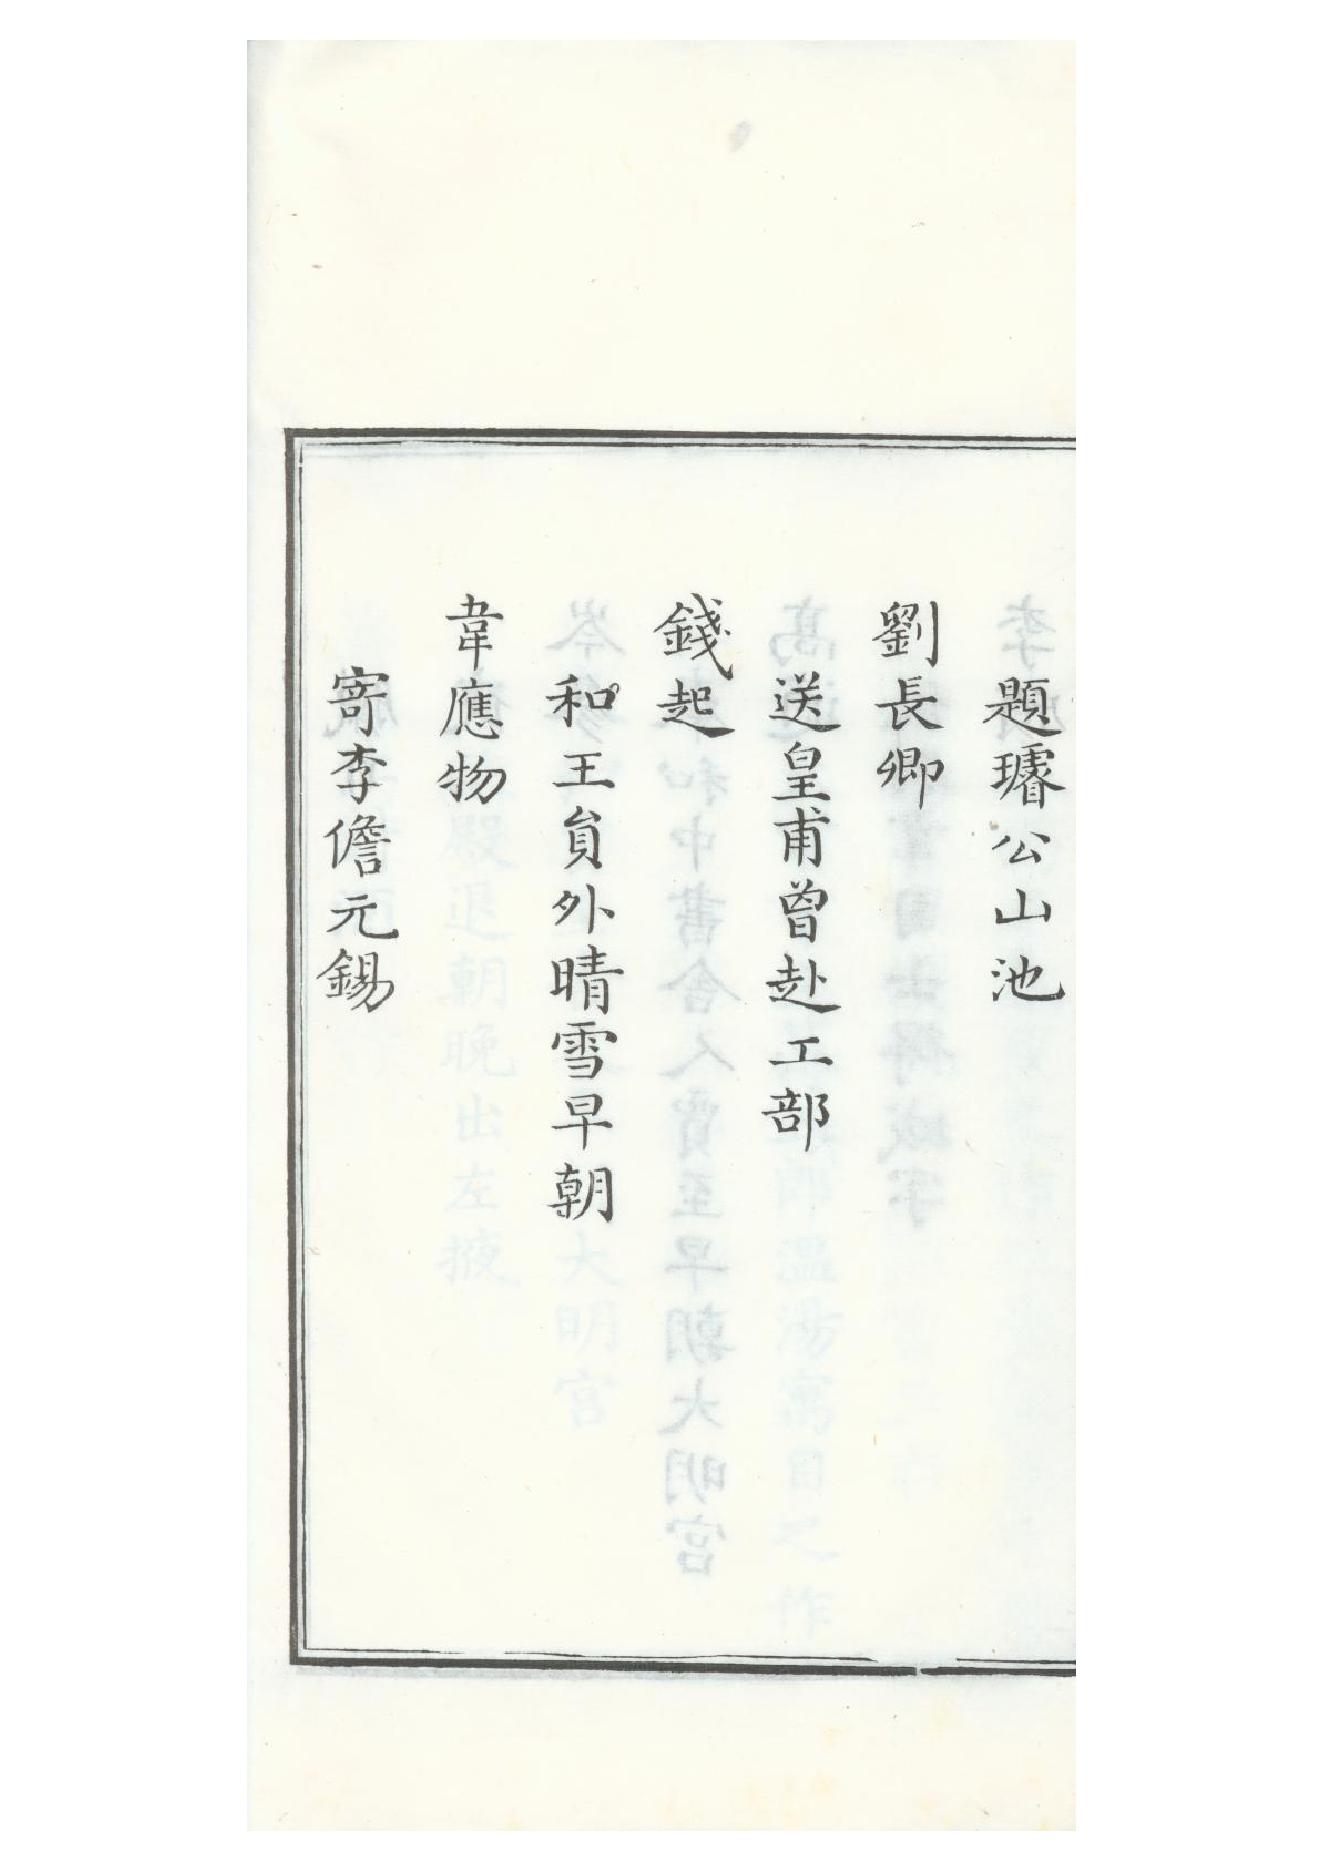 題璿公山池
劉長卿
送皇甫曾赴工部
錢起
和王員外晴雪早朝
韋應物
寄李儋元錫